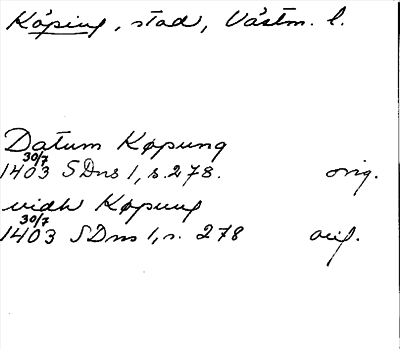 Köping, stad, Västm. l.
Datum Køpung
30/7
1403 SDns 1, s. 278. orig.
vidh Køpung
30/7
1403 SDns 1, s. 278 orig.